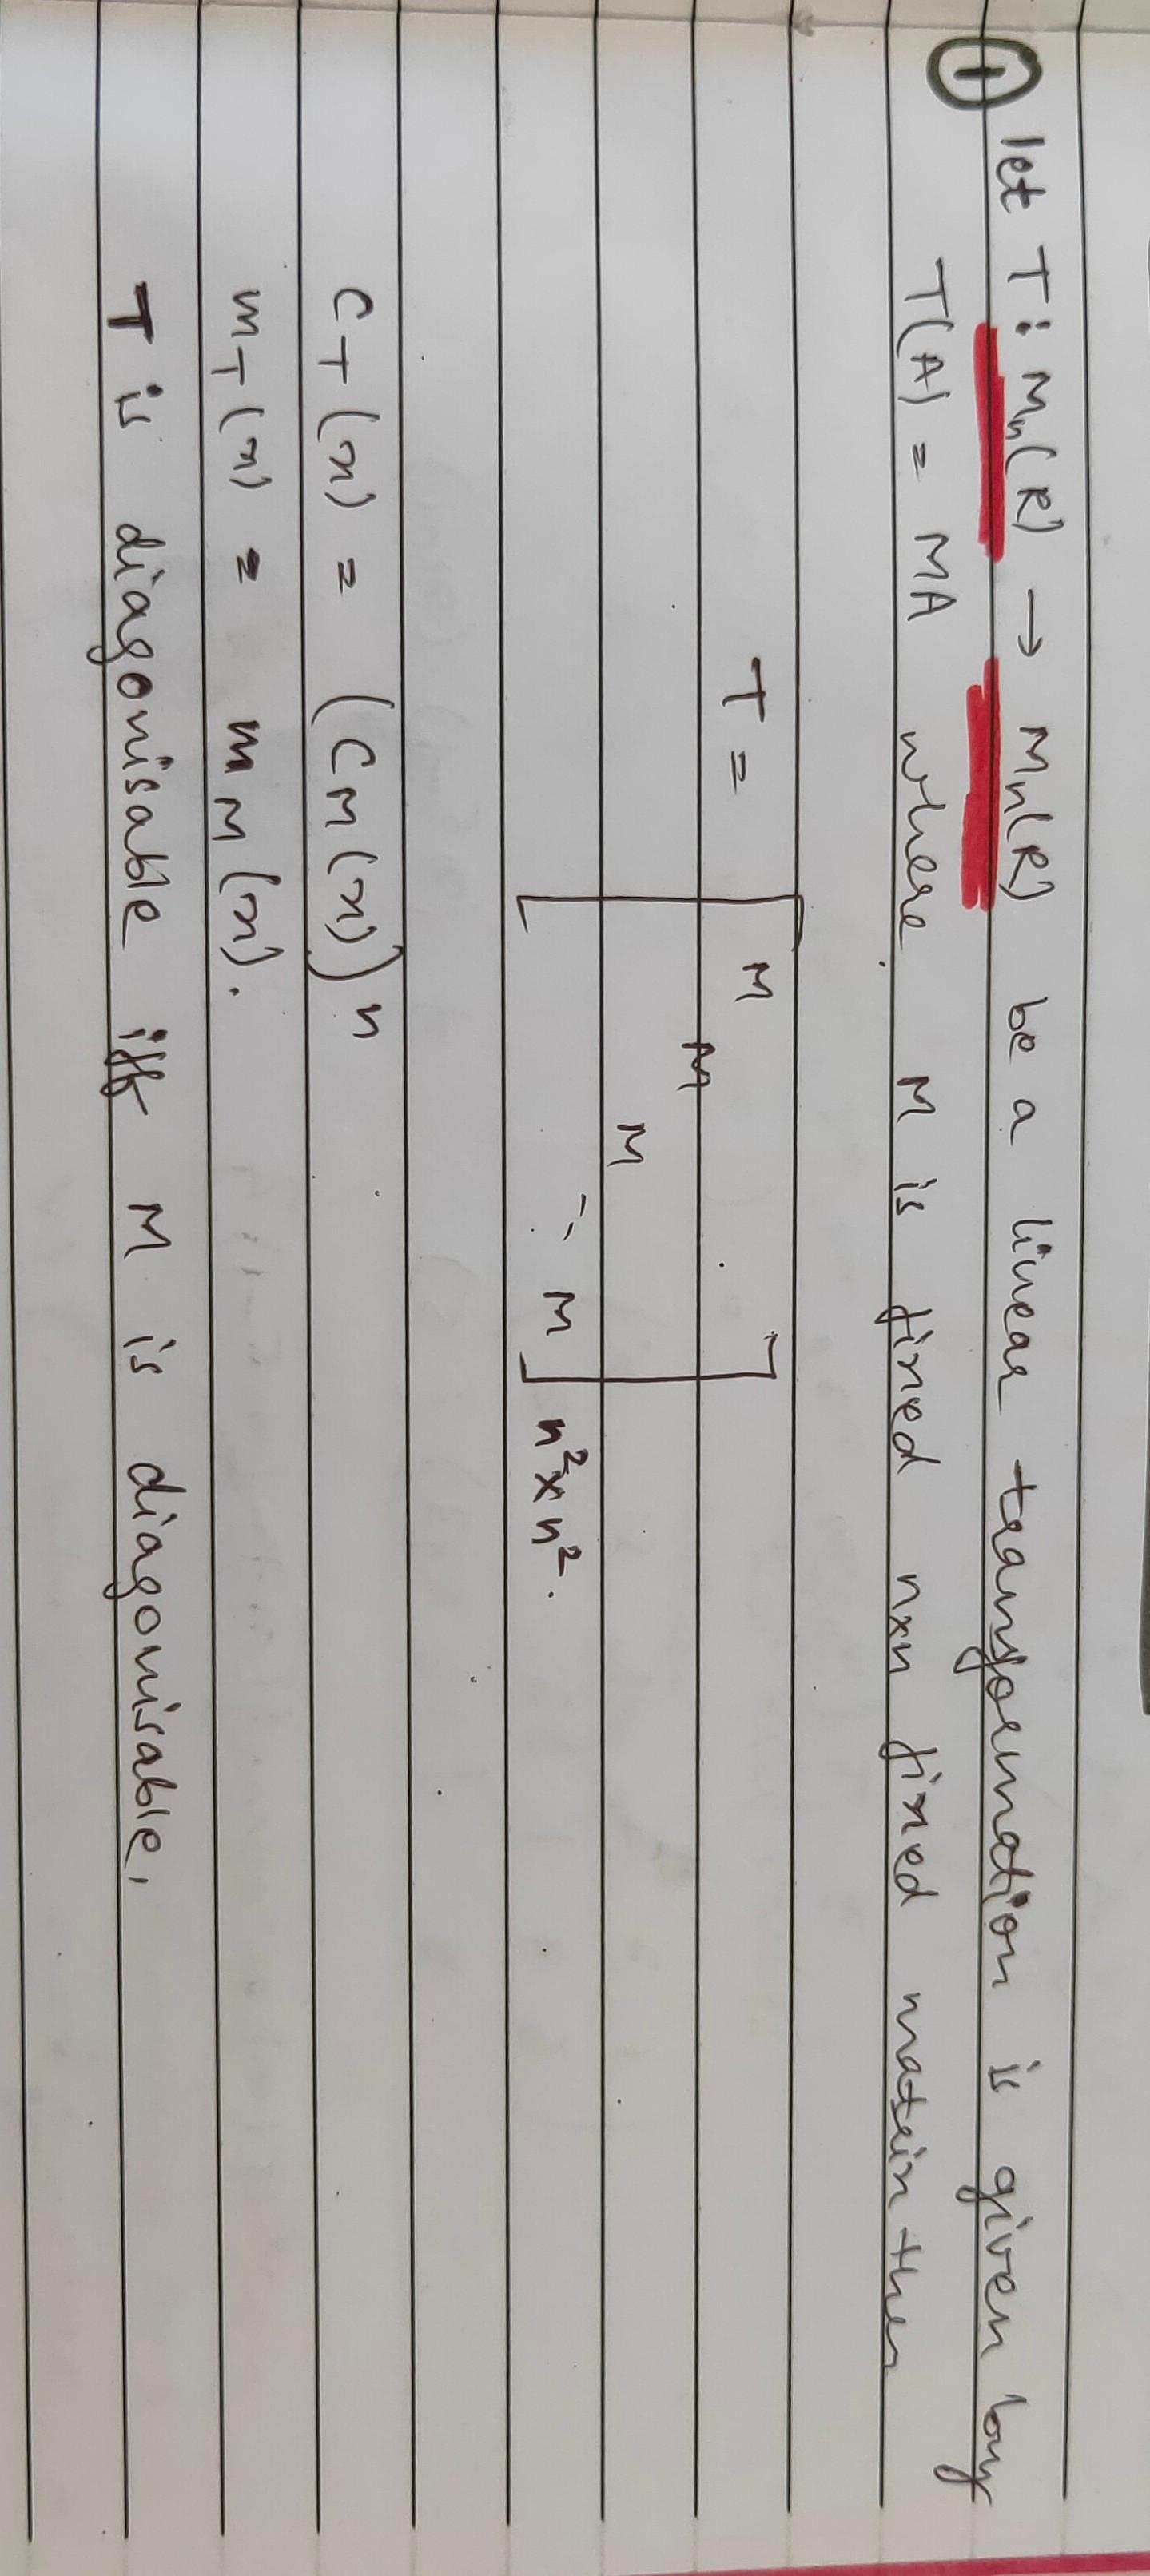 ① let T : Mn(R) → Mn(R) be a linear transformation is given by
T(A) = MA where M is fixed nxn fixed matrix then
T = [ M
M
M
⋱
M ] n² x n².
C_T(x) = (C_M(x))ⁿ
m_T(x) = m_M(x).
T is diagonisable iff M is diagonisable.